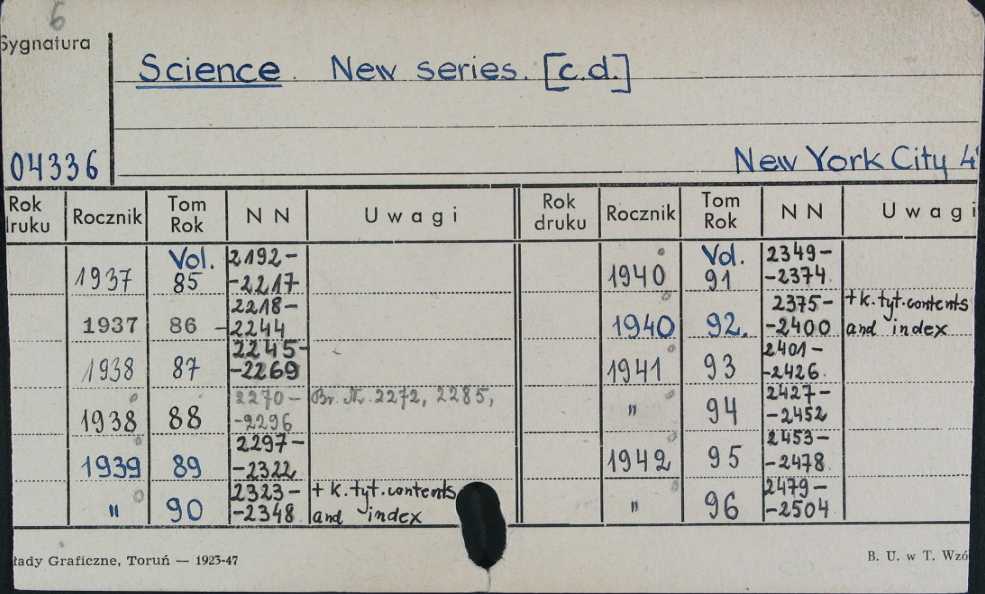 6
Sygnatura
Science. New series. [c.d.]
04336
New York City 4
Rok druku Rocznik Tom Rok N N Uwagi
Vol. 2192–
1937 85 -2217
2218–
1937 86 -2244
2245–
1938 87 -2269
2270– Br. Nr. 2272, 2285,
1938 88 -2296
2297–
1939 89 -2322
2323– + k. tyt. contents
" 90 -2348 and index
Rok druku Rocznik Tom Rok N N Uwagi
Vol. 2349–
1940 91 -2374
2375– + k. tyt. contents
1940 92. -2400 and index
2401–
1941 93 -2426
2427–
" 94 -2452
2453–
1942 95 -2478
2479–
" 96 -2504
łady Graficzne, Toruń — 1923-47
B. U. w T. Wzó